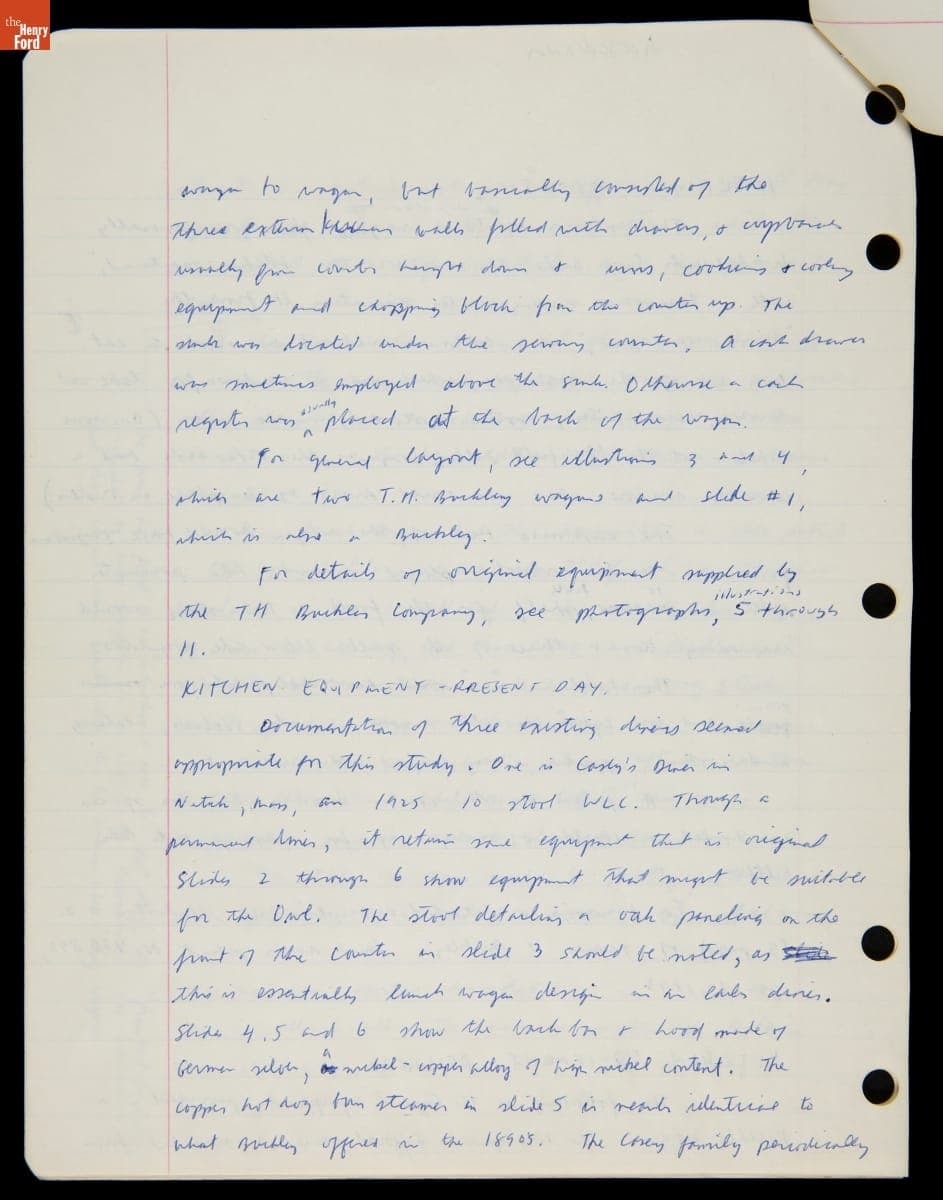 the
Henry
Ford
wagon to wagon, but basically consisted of the
three exterior kitchen walls filled with drawers, & cupboards
usually from counter height down & urns, cooking & cooling
equipment and chopping block from the counter up. The
sink was located under the serving counter. A cash drawer
was sometimes employed above the sink. Otherwise a cash
register was usually placed at the back of the wagon.
For general layout, see illustrations 3 and 4,
which are two T.H. Buckley wagons and slide #1,
which is also a Buckley.
For details of original equipment supplied by
the TH Buckley Company, see photographs, illustrations 5 through
11.
KITCHEN EQUIPMENT - PRESENT DAY.
Documentation of three existing diners seemed
appropriate for this study. One is Casey's Diner in
Natick, Mass, an 1925 10 stool WLC. Though a
permanent diner, it retains some equipment that is original
Slides 2 through 6 show equipment that might be suitable
for the Owl. The stool detailing & oak paneling on the
front of the counter in slide 3 should be noted, as
this is essentially lunch wagon design in an early diner.
Slides 4, 5 and 6 show the back bar & hood made of
German silver, a nickel-copper alloy of high nickel content. The
copper hot dog bun steamer in slide 5 is nearly identical to
what Buckley offered in the 1890s. The Casey family periodically